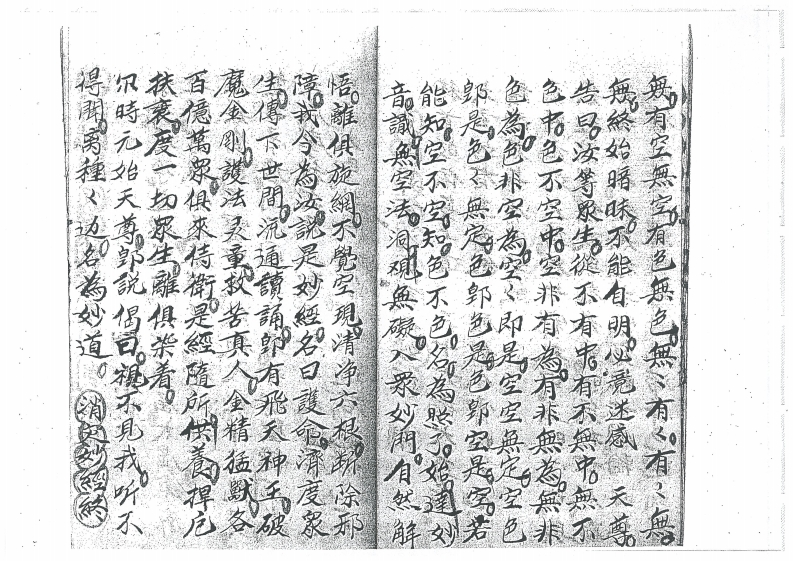 無有空無空有色無色無〻有〻有〻無
無終始暗昧不能自明心竟迷惑　天尊
告曰汝等眾生從不有中有不無中無不
色中色不空中空非有為有非無為無非
色為色非空為空〻即是空空無定空色
即是色〻無定色即色是色即空是空若
能知空不空知色不色名為照了始達妙
音識無空法洞觀無礙入眾妙門自然解
悟離俱旋網不覺空現清净六根斷除邪
障我今為汝說是妙經名曰護命濟度眾
生傳下世間流通讀誦即有飛天神王破
魔金剛護法灵童救苦真人金精猛獸各
百億萬眾俱來侍衛是經隨所供養捍厄
扶衰度一切眾生離俱染着
尔時元始天尊即說偈曰視不見我听不
得聞离種〻边名為妙道　消灾妙經終